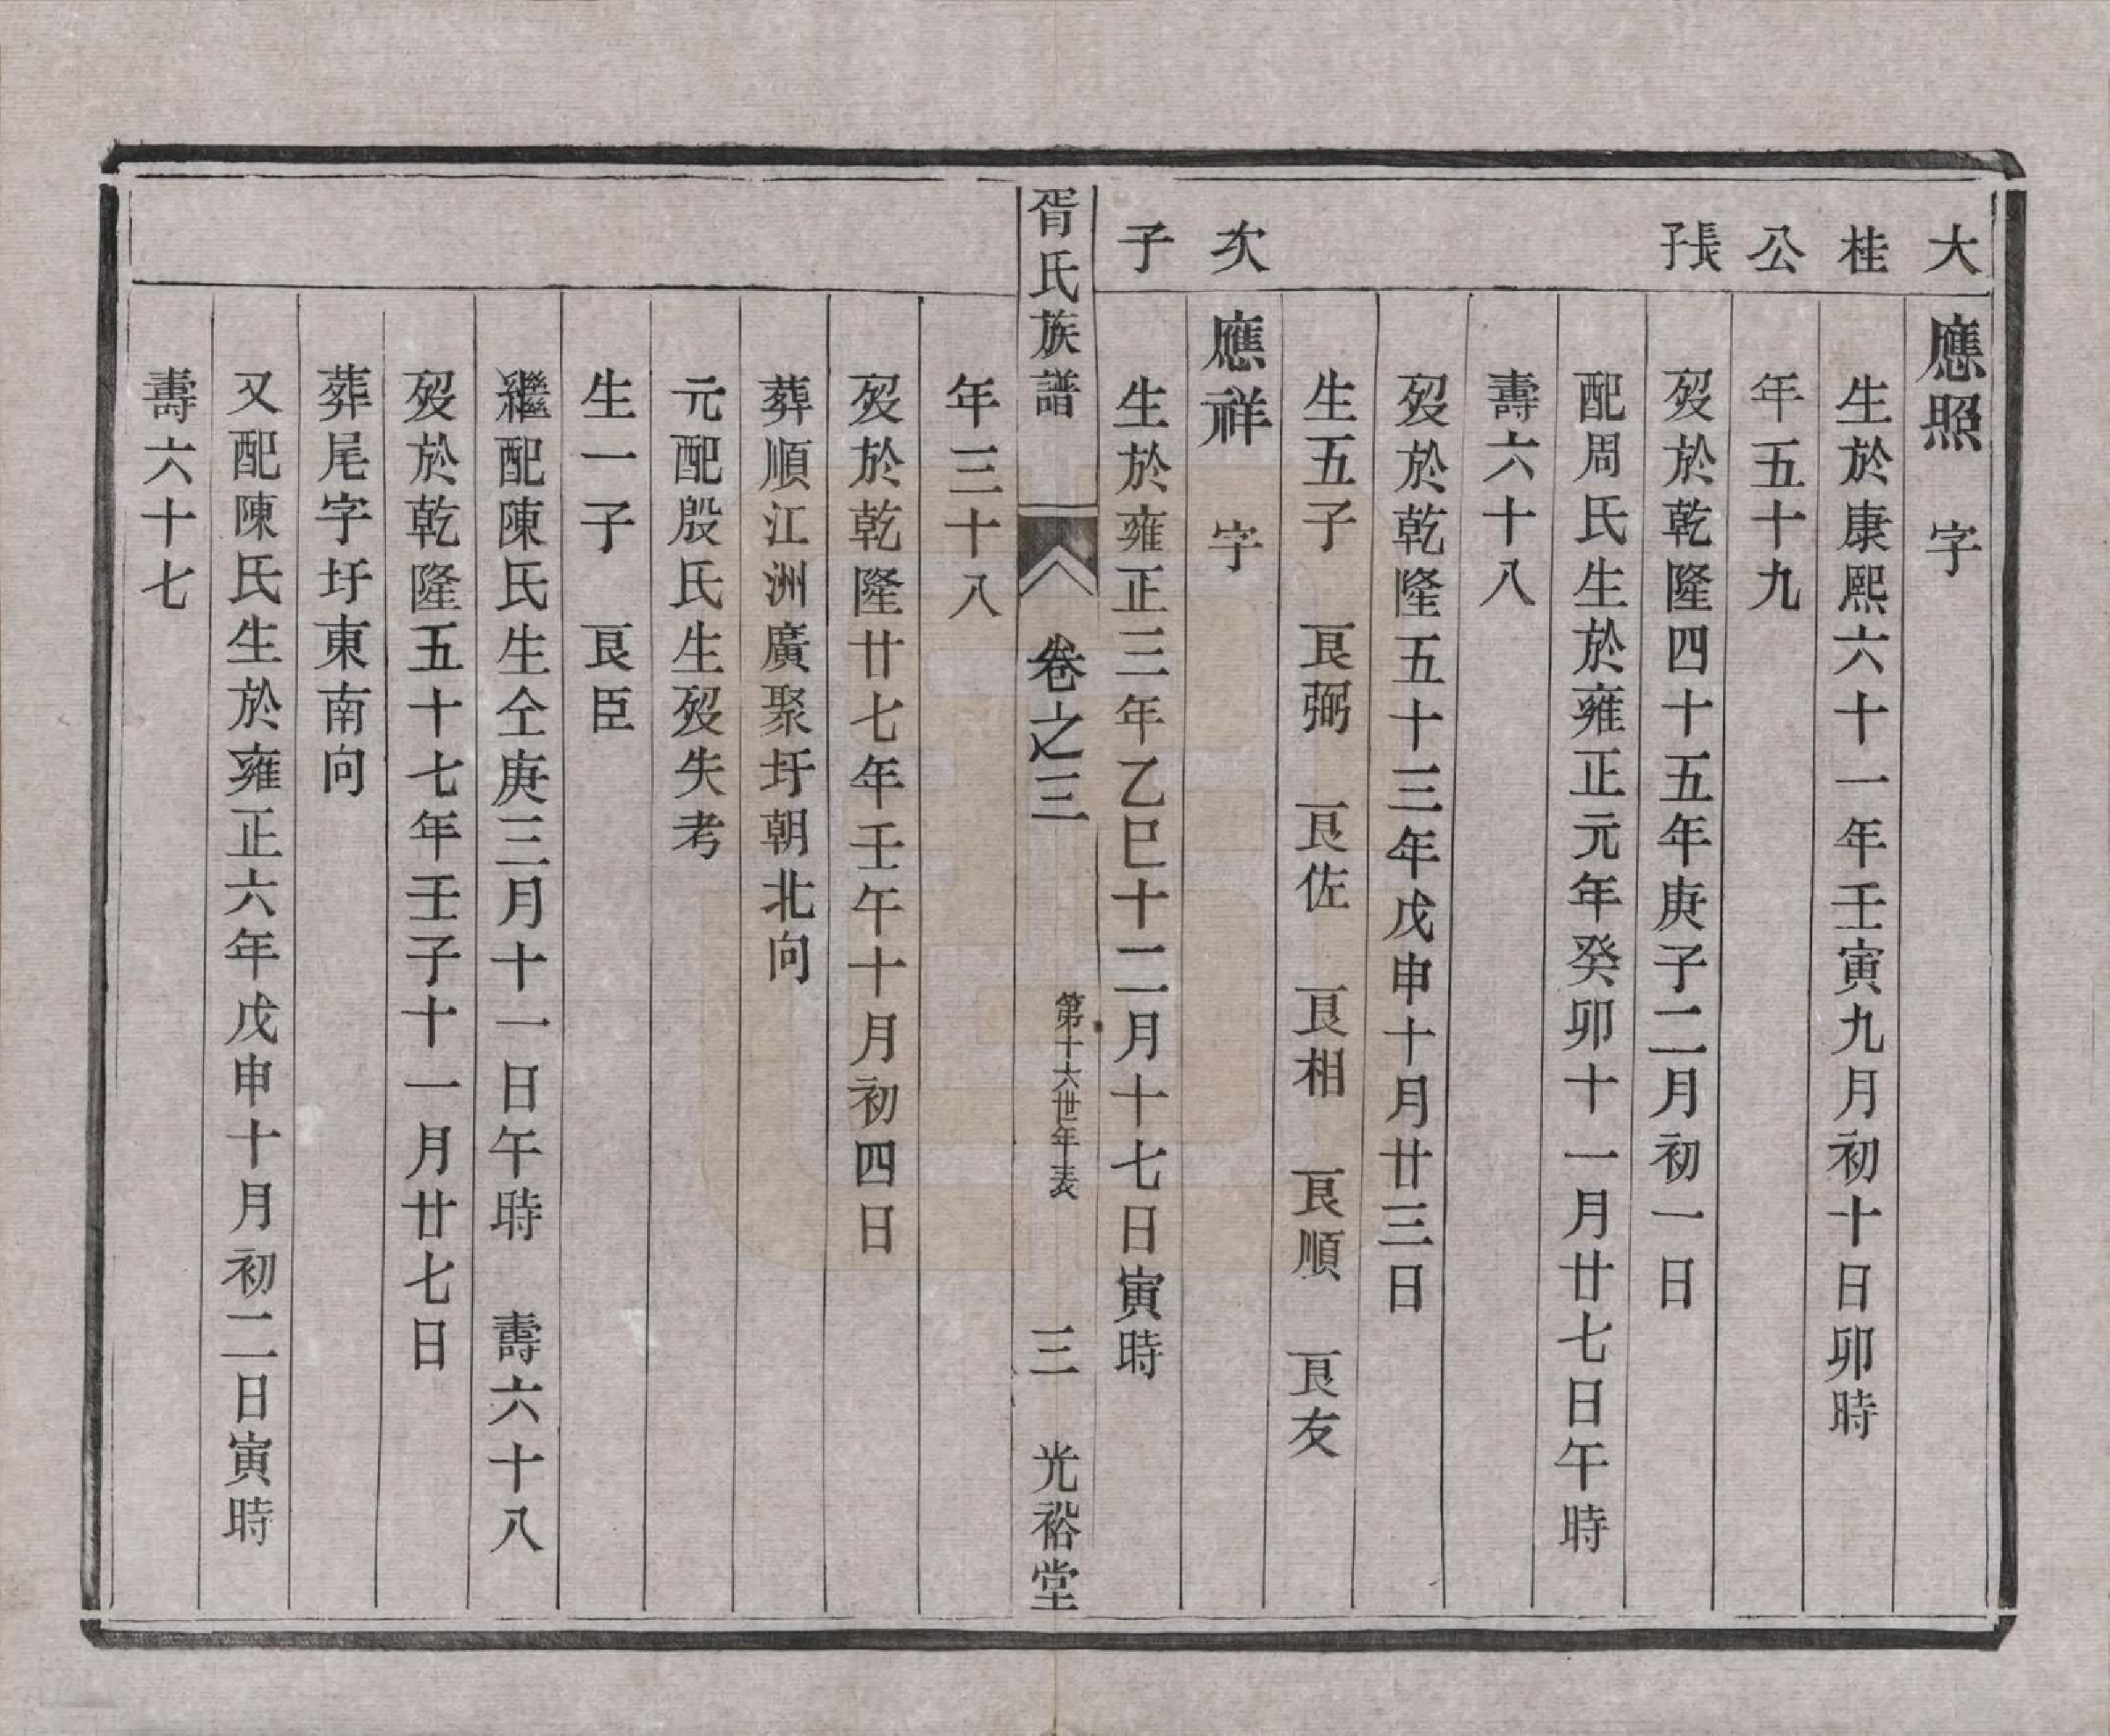 大桂公長子
應照 字
生於康熙六十一年壬寅九月初十日卯時
年五十九
歿於乾隆四十五年庚子二月初一日
配周氏生於雍正元年癸卯十一月廿七日午時
壽六十八
歿於乾隆五十三年戊申十月廿三日
生五子 艮弼 艮佐 艮相 艮順 艮友
次子
應祥 字
生於雍正三年乙巳十二月十七日寅時
胥氏族譜 卷之三 第十六世年表 三 光裕堂
年三十八
歿於乾隆廿七年壬午十月初四日
葬順江洲廣聚圩朝北向
元配殷氏生歿失考
生一子 艮臣
繼配陳氏生仝庚三月十一日午時 壽六十八
歿於乾隆五十七年壬子十一月廿七日
葬尾字圩東南向
又配陳氏生於雍正六年戊申十月初二日寅時
壽六十七